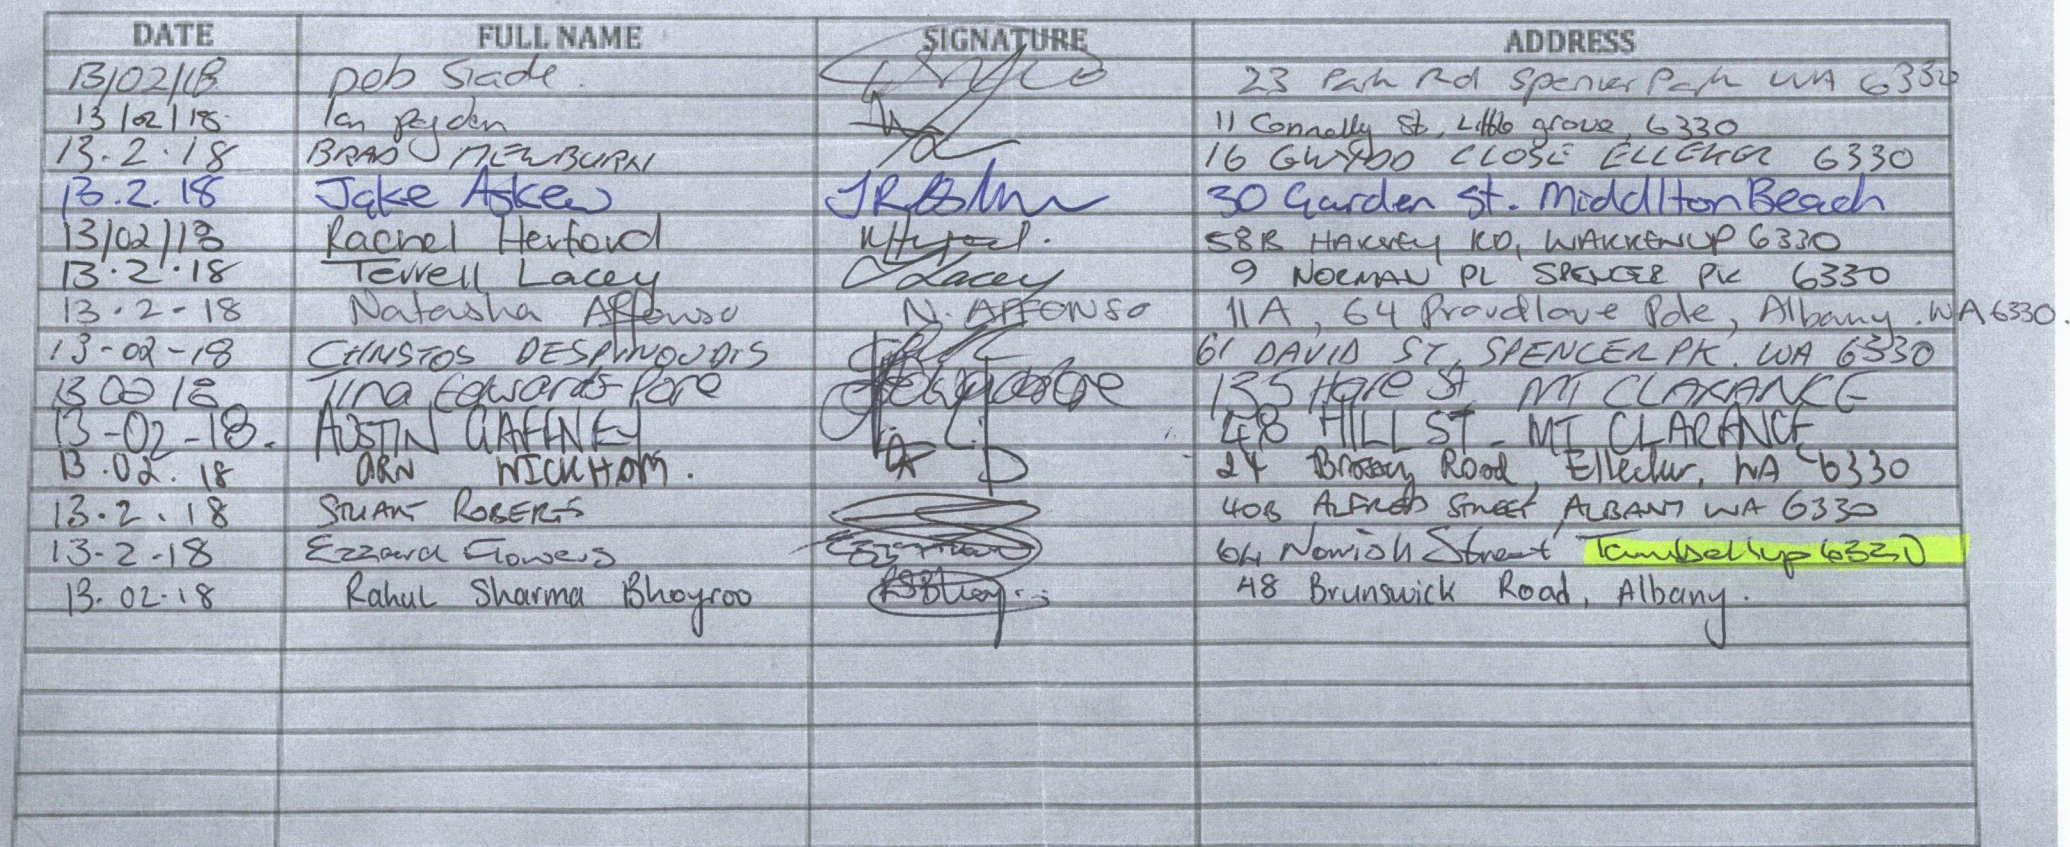 DATE FULL NAME SIGNATURE ADDRESS
13/02/18 Deb Slade. 23 Park Rd Spencer Park WA 6330
13/02/18 Ian 11 Connolly St, Little grove, 6330
13.2.18 BRAD NEWBURN 16 CLOSE ELLEKER 6330
13.2.18 Jake Askew 30 Garden St. MiddltonBeach
13/02/18 Rachel Herford 58B HARVEY RD, YAKKENUP 6330
13.2.18 Terrell Lacey Lacey 9 NORMAN PL SPENCER PK 6330
13.2-18 Natasha Affonso N. AFFONSO 11A, 64 Proudlove Pde, Albany. WA 6330.
13-02-18 CHRISTOS 61 DAVID ST, SPENCER PK. WA 6330
13 02 18 Tina Edwards-Pare 135 Hare St MT CLARANCE
13-02-18. AUSTIN GAFFNEY 48 HILL ST - MT CLARANCE
13.02.18 ARN WICKHAM. 24 Road, WA 6330
13.2.18 STUART ROBERTS 40B ALFRED STREET ALBANY WA 6330
13-2-18 Ezzard Flowers 64 Norrish Street Tambellup 6330
13.02.18 Rahul Sharma Bhoyroo 48 Brunswick Road, Albany.